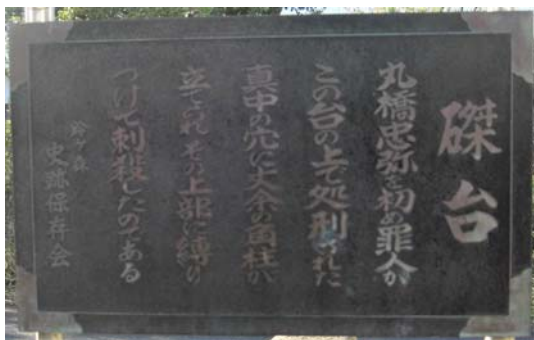 磔台
丸橋忠弥を初め罪人が
この台の上で処刑された
真中の穴に丈余の角柱が
立てられ その上部に縛り
つけて刺殺したのである
鈴ヶ森
史跡保存会